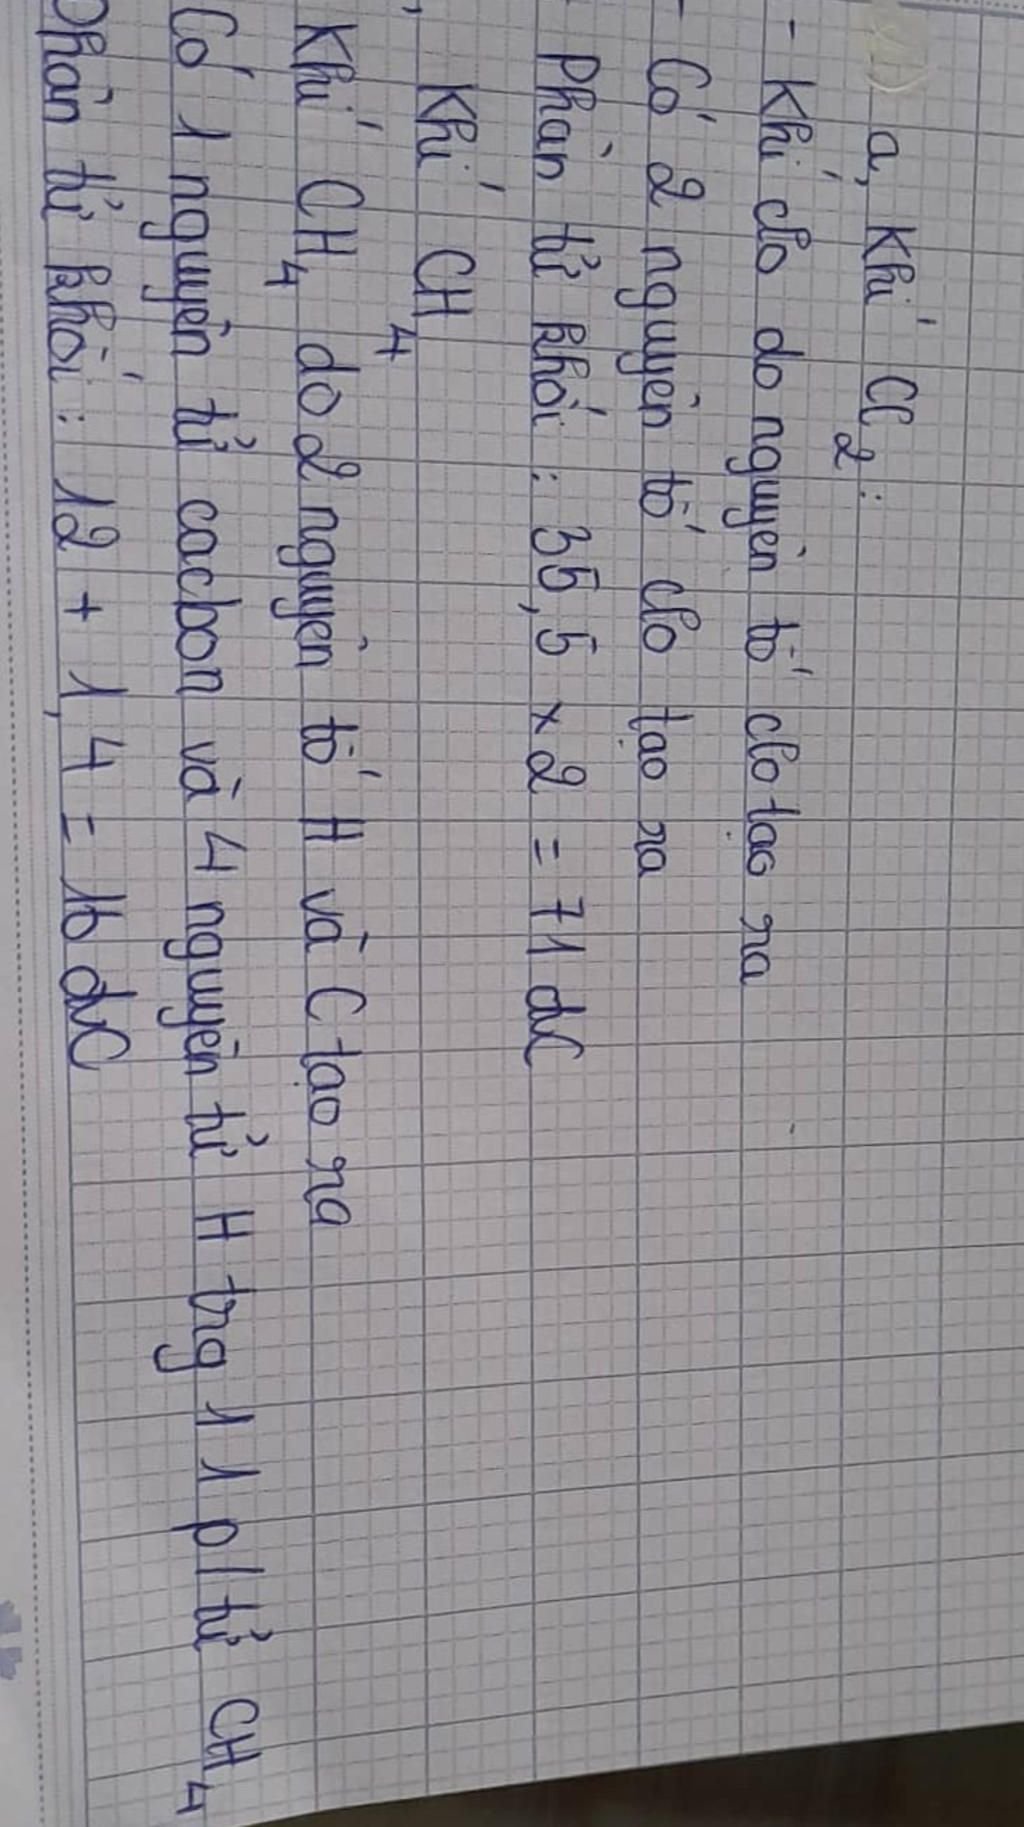 a, Khí Cl2:
- Khí clo do nguyên tố clo tạo ra
- Có 2 nguyên tố clo tạo ra
Phân tử khối : 35,5 x 2 = 71 đvC
, Khí CH4
Khí CH4 do 2 nguyên tố H và C tạo ra
Có 1 nguyên tử cacbon và 4 nguyên tử H trg 1 1 p/tử CH4
Phân tử khối : 12 + 1,4 = 16 đvC